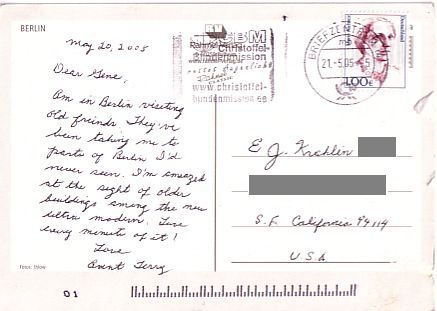 BERLIN
May 20, 2005
Dear Gene,
Am in Berlin visiting
old friends. They've
been taking me to
parts of Berlin I'd
never seen. I'm amazed
at the sight of older
buildings among the new
ultra modern. Love
every minute of it!
Love
Aunt Terry
CBM
Christoffel-
Blindenmission
www.christoffel-
blindenmission.de
BRIEFZENTRUM
21.-5.05
1,00€
E J. Krehlin
S.F. California 94114
U.S.A
01